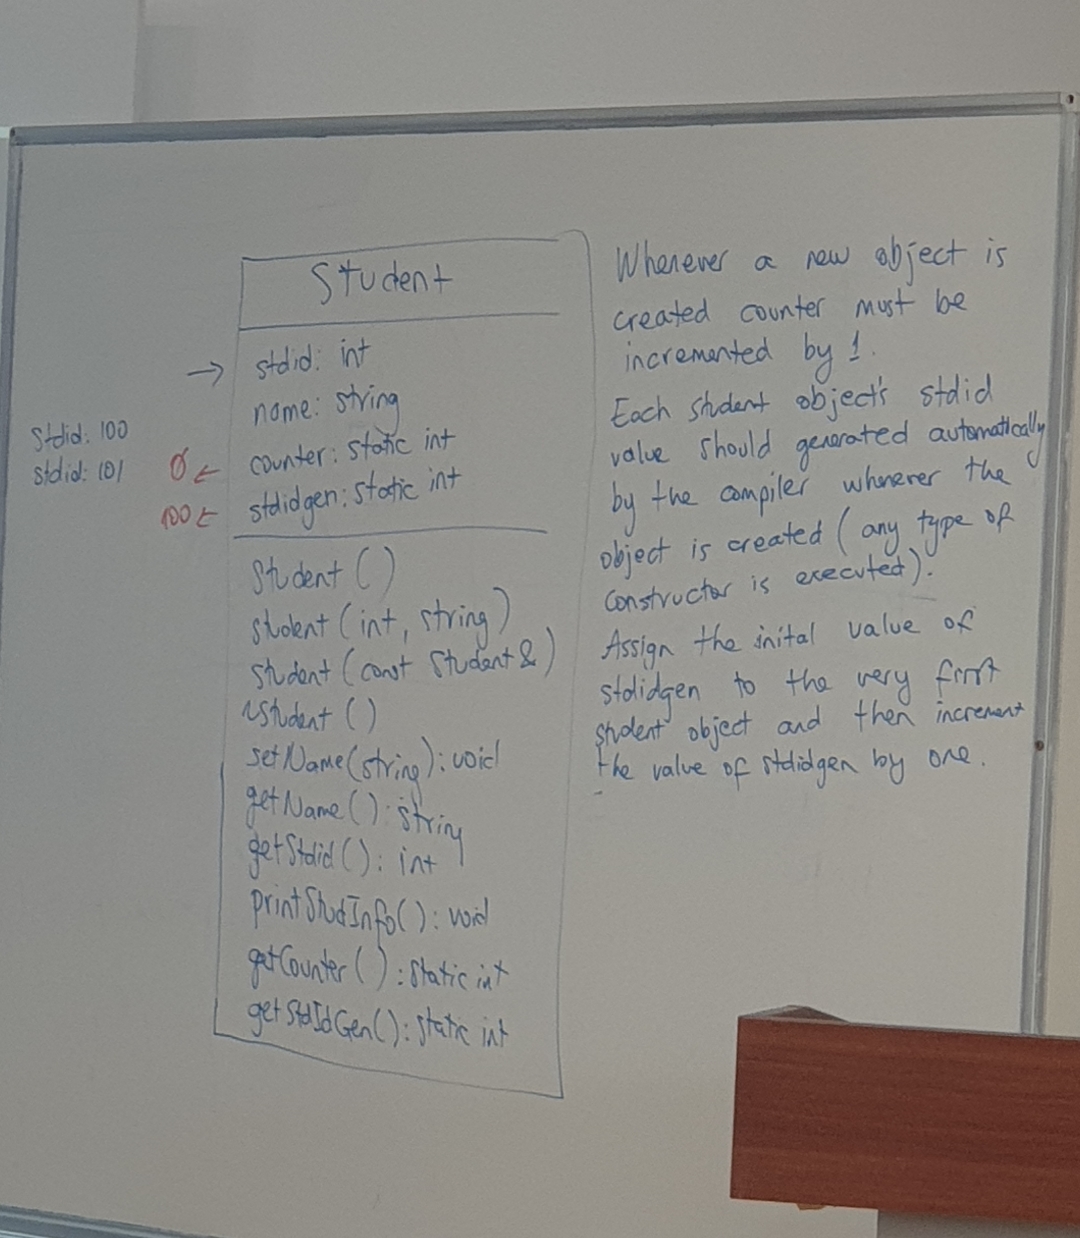 Student
stdid: int
name: string
counter: static int
stdidgen: static int
Student ()
student (int, string)
student (const Student &)
~student ()
setName(string): void
getName(): string
getStdid(): int
printStudInfo(): void
getCounter(): static int
getStdIdGen(): static int
→
stdid: 100
stdid: 101
0 ←
100 ←
Whenever a new object is
created counter must be
incremented by 1.
Each student object's stdid
value should generated automatically
by the compiler whenever the
object is created (any type of
constructor is executed).
Assign the inital value of
stdidgen to the very first
student object and then increment
the value of stdidgen by one.